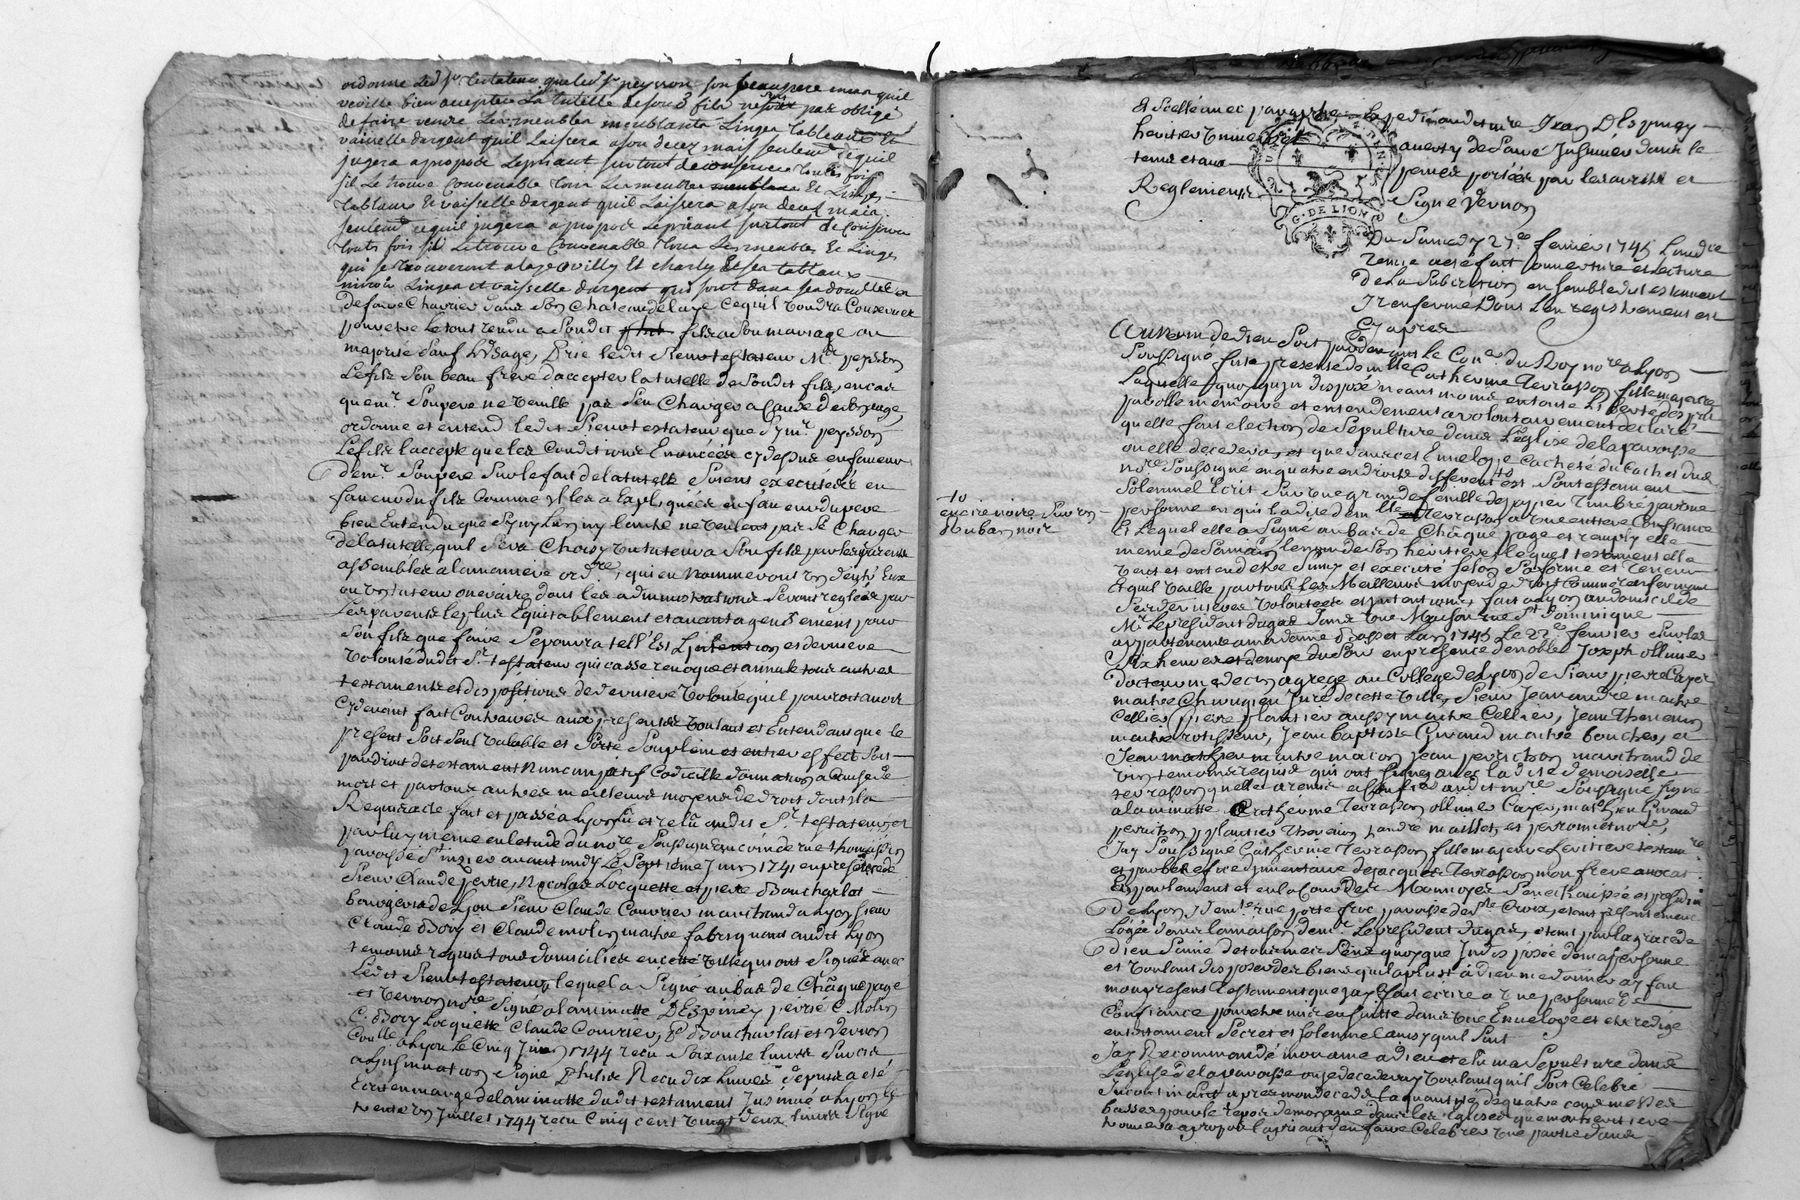 ordonne led. Sr. testateur que led. Sr. peysson son beaupere en cas quil
veuille bien accepter la tutelle de sond. fils ne soit pas obligé
de faire vendre les meubles meublants linges tableaux et
vaisselle dargent quil laissera a son decez mais seulemt. ce quil
jugera apropos le priant surtout de conserver toutes fois
sil le trouve convenable tous les meubles meublans et linges
tableaux et vaisselle dargent quil laissera a son decez mais
seulemt. ce quil jugera apropos le priant surtout de conserver
toutes fois sil le trouve convenable tous les meubles et linges
qui se trouveront a laye ouilly et charly et ses tableaux
miroirs linges et vaisselle dargent qui sont dans
de faire charrier dans son chateau de laye ce quil voudra conserver
pour etre le tout rendu a sondit fils a son mariage ou
majorité sauf lusage, Prie ledit Sieur testateur Mr. peysson
le fils son beau frere daccepter la tutelle de sondit fils, en cas
que mr. son pere ne veuille pas sen charger a cause de son age,
ordonne et entend ledit Sieur testateur que sy mr. peysson
le fils laccepte que les conditions enoncées cy dessus en faveur
de mr. son pere sur le fait de la tutelle soient executées en
faveur du fils comme il les a expliquées en faveur du pere
bien entendu que sy ny lun ny lautre ne veulent pas se charger
de la tutelle quil sera choisy un tuteur a son fils par les parents
assemblés a la maniere ordre., qui en nommeront un dentre eux
ou un tuteur onéraire dont les administrations seront reglées par
les parents le plus equitablement et avantageusement pour
son fils que faire se pourra telle est lintention et derniere
volonté dudit Sr. testateur qui casse revoque et annulle tous autres
testaments et dispositions de derniere volonté quil pourroit avoir
cy devant fait contraires aux presentes voulant et entendant que le
present soit seul valable et sorte son plein et entier effet soit
par droit de testament nuncupatif codicille donnation a cause de
mort et par tous autres meilleurs moyens de droit dont il a
Requis acte fait et passé a Lyon lu et relu audit Sr. testateur et
par luy meme en letude du nore. soussigné au coin de rue thomassin
paroisse St. nizier avant midy le septieme juin 1741 en presence de
Sieur Claude perre, Nicolas Locquette et pierre Boucharlat
bourgeois de Lyon Sieur Claude Couvrier marchand a Lyon sieur
Claude Bory et Claude molin maitre fabriquant audit Lyon
temoins requis tous domiciliés en cette ville qui ont signés avec
ledit Sieur testateur, lequel a signé au bas de chaque page
et Vernon nore. signé a la minutte DEspiney perré C. Molin
C. Bory Locquette Claude Couvrier, P. Boucharlat et Vernon
Conlle. a Lyon le cinq juin 1744 recu soixante livres sur cie
a linsinuation signé Philip Recu dix livres depuis a eté
écrit en marge de la minutte dudit testament Insinué a Lyon le
trente un juillet 1744 recu cinq cent vingt deux livres signé
Et scellé avec paraphe
heritier universel
tems et aux peines portées par les arrets et
Reglements Signé Vernon
G. DE LION
Du Samedy 27e. fevrier 1745 Laudce.
tenue a eté fait ouverture et lecture
de la subscription ensemble du testament
y renfermé dont lenregistrement est
Cy apres
Au Nom de Dieu soit par devant le Coner. du Roy nore. a Lyon
soussigné fut presente demlle. Catherine Terrasson fille majeure
laquelle quoy quindisposée neant moins en toute liberté desprit
parolle memoire et entendement a volontairement declaré
quelle fait election de sepulture dans leglise de la paroisse
ou elle decedera, et que dans cet envelope cacheté du cachet dud.
nore. soussigné en quatre endroits differents est son testament
solemnel ecrit sur une grande feuille de papier timbré par une
personne en qui ladite demlle. Terrasson a une entiere confiance
+o
en cire noire sur un
Ruban noir
et lequel elle a signé au bas de chaque page et remply elle
meme de sa main le nom de son heritiere lequel testament elle
veut et entend etre suivy et executé selon sa forme et teneur
et quil vaille par tous les meilleurs moyens de droit comme renfermant
ses dernieres volontés et intentions, fait a Lyon au domicile de
Mr. le president dugas dans une maison rue St. Dominique
appartenante a madame Basset Lan 1745 le 22e. fevrier sur les
dix heures et demye du soir en presence de noble Joseph ollivier
docteur medecin agregé au college de Lyon de sieur pierre Cayer
maitre chirurgien juré de cette ville, sieur Jean andré maitre
cellier, pierre plantier aussy maitre cellier, Jean Thevenin
maitre rotisseur, Jean baptiste Giraud maitre boucher, et
Jean mathieu maitre macon Jean perrichon marchand de
vin temoins requis qui ont signé avec ladite demoiselle
terrasson quelle a remise a linstant audit nore. soussigné signé
a la minutte Catherine Terrasson ollivier Cayer, mathieu Giraud
perrichon, p. plantier Thevenin, J. andré
Jay soussigné Catherine Terrasson fille majeure heritiere testamre.
et par benefice dinventaire de Jacques Terrasson mon frere avocat
en parlement et en la cour des Monnoyes senechaussée et presidial
de Lyon, demte. rue porte froc paroisse de Ste. Croix, etant presentement
logée dans la maison de mr. le president dugas, etant par la grace de
dieu saine de tous mes sens quoyque indisposée de ma personne
et voulant disposer des biens quil a plut a dieu me donner ay fait
mon present testament que jay fait ecrire a une personne de
confiance pour etre mis en suitte dans une envelope et etre redigé
en testament secret et solemnel ainsy quil suit
Jay Recommandé mon ame a dieu et elu ma sepulture dans
leglise de la paroisse ou je decederay voulant quil soit celebré
incontinent apres mon decez la quantité de quatre cent messes
basses pour le repos de mon ame dans les eglises que mon heritiere
trouvera apropos la priant den faire celebrer une partie dans